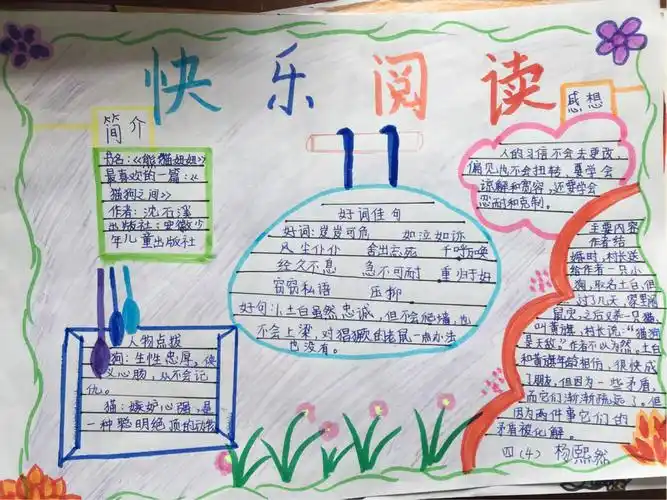 快乐阅读
简介
书名:《熊猫妞妞》
最喜欢的一篇:《
猫狗之间》
作者:沈石溪
出版社:安徽少
年儿童出版社
人物点拨
狗:生性忠厚,侠
义心肠,从不会记
仇。
猫:嫉妒心强,是
一种聪明绝顶的动物
好词佳句
好词:岌岌可危 如泣如诉
风尘仆仆 舍出忘死 千呼万唤
经久不息 急不可耐 重归于好
窃窃私语 压抑
好句:小土白虽然忠诚,但不会爬墙,也
不会上梁,对猖獗的老鼠一点办法
也没有。
感想
人的习惯不会去更改,
偏见也不会扭转,要学会
谅解和宽容,还要学会
忍耐和克制。
主要内容
作者结
婚时,村长送
给作者一只小
狗,取名土白,但
过了几天,家里闹
鼠灾,之后又养一只猫,
叫黄旗,村长说:“猫狗
是天敌”作者不以为然。土白
和黄旗年龄相仿,很快成
了朋友,但因为一些矛盾,
而它们渐渐疏远了。但
因为两件事它们的
矛盾被化解。
四(4) 杨熙然